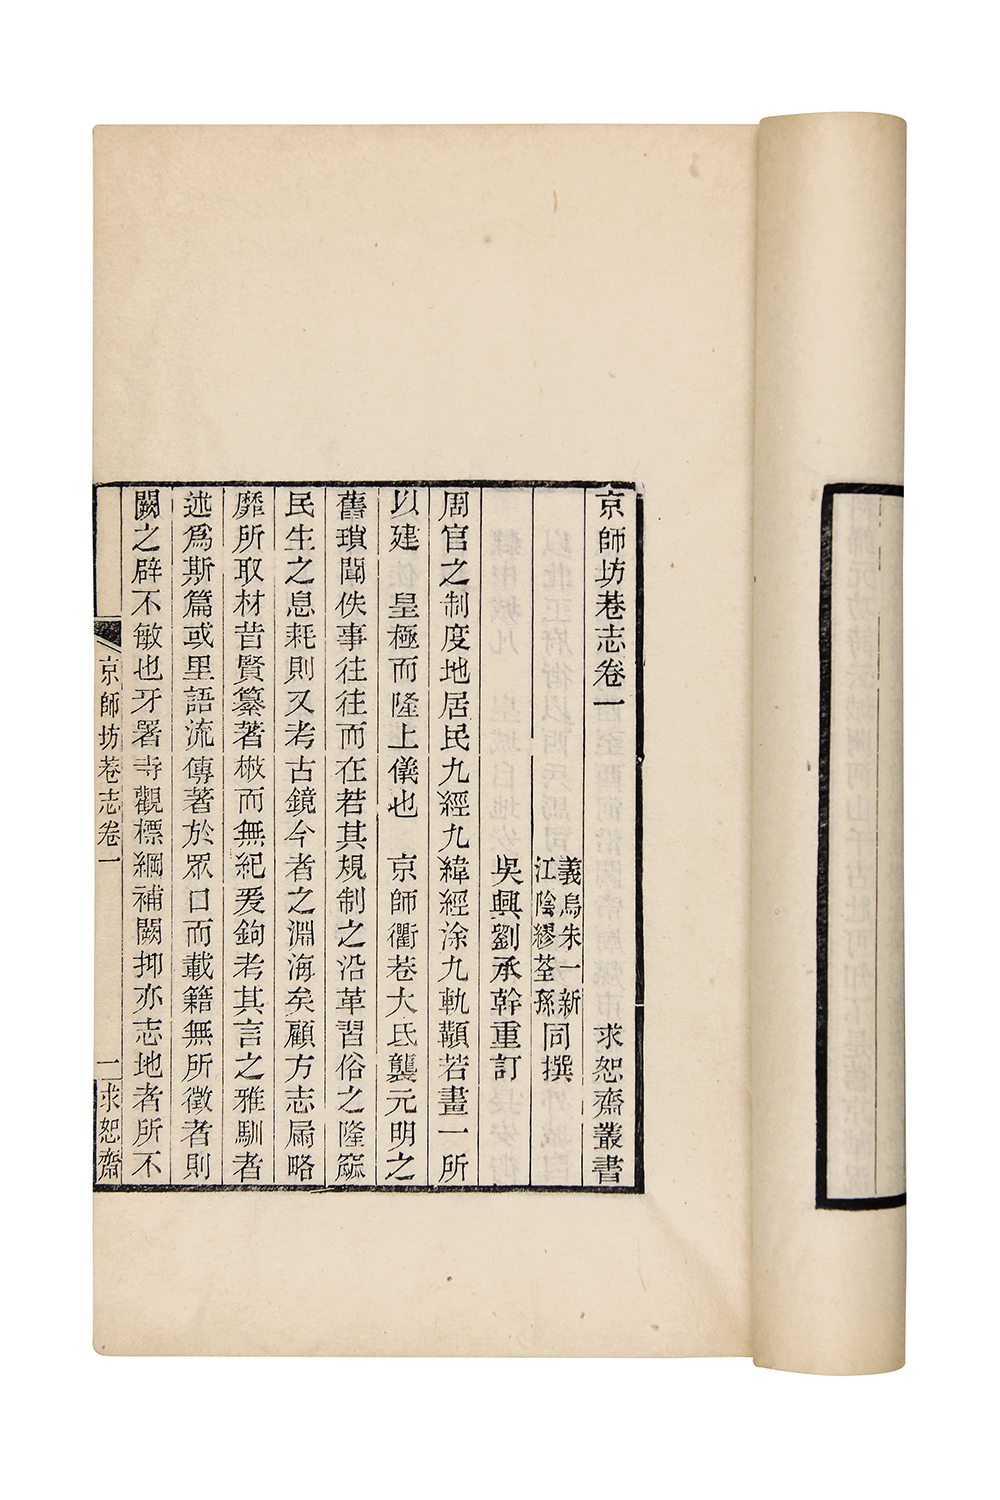 京師坊巷志卷一　求恕齋叢書
義烏朱一新
江陰繆荃孫
同撰
吳興劉承幹重訂
周官之制度地居民九經九緯經涂九軌顜若畫一所
以建　皇極而隆上儀也　京師衢巷大氐襲元明之
舊瑣聞佚事往往而在若其規制之沿革習俗之隆窳
民生之息耗則又考古鏡今者之淵海矣顧方志扃略
靡所取材昔賢纂著樷而無紀爰鉤考其言之雅馴者
述爲斯篇或里語流傳著於眾口而載籍無所徵者則
闕之辟不敏也牙署寺觀標綱補闕抑亦志地者所不
京師坊巷志卷一
一
求恕齋